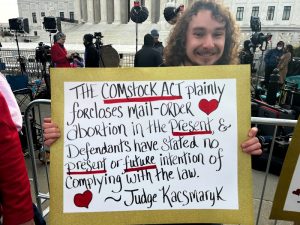 THE COMSTOCK ACT plainly
forecloses mail-order
abortion in the Present &
Defendants have stated no
present or future intention of
complying with the law.
~ Judge Kacsmaryk